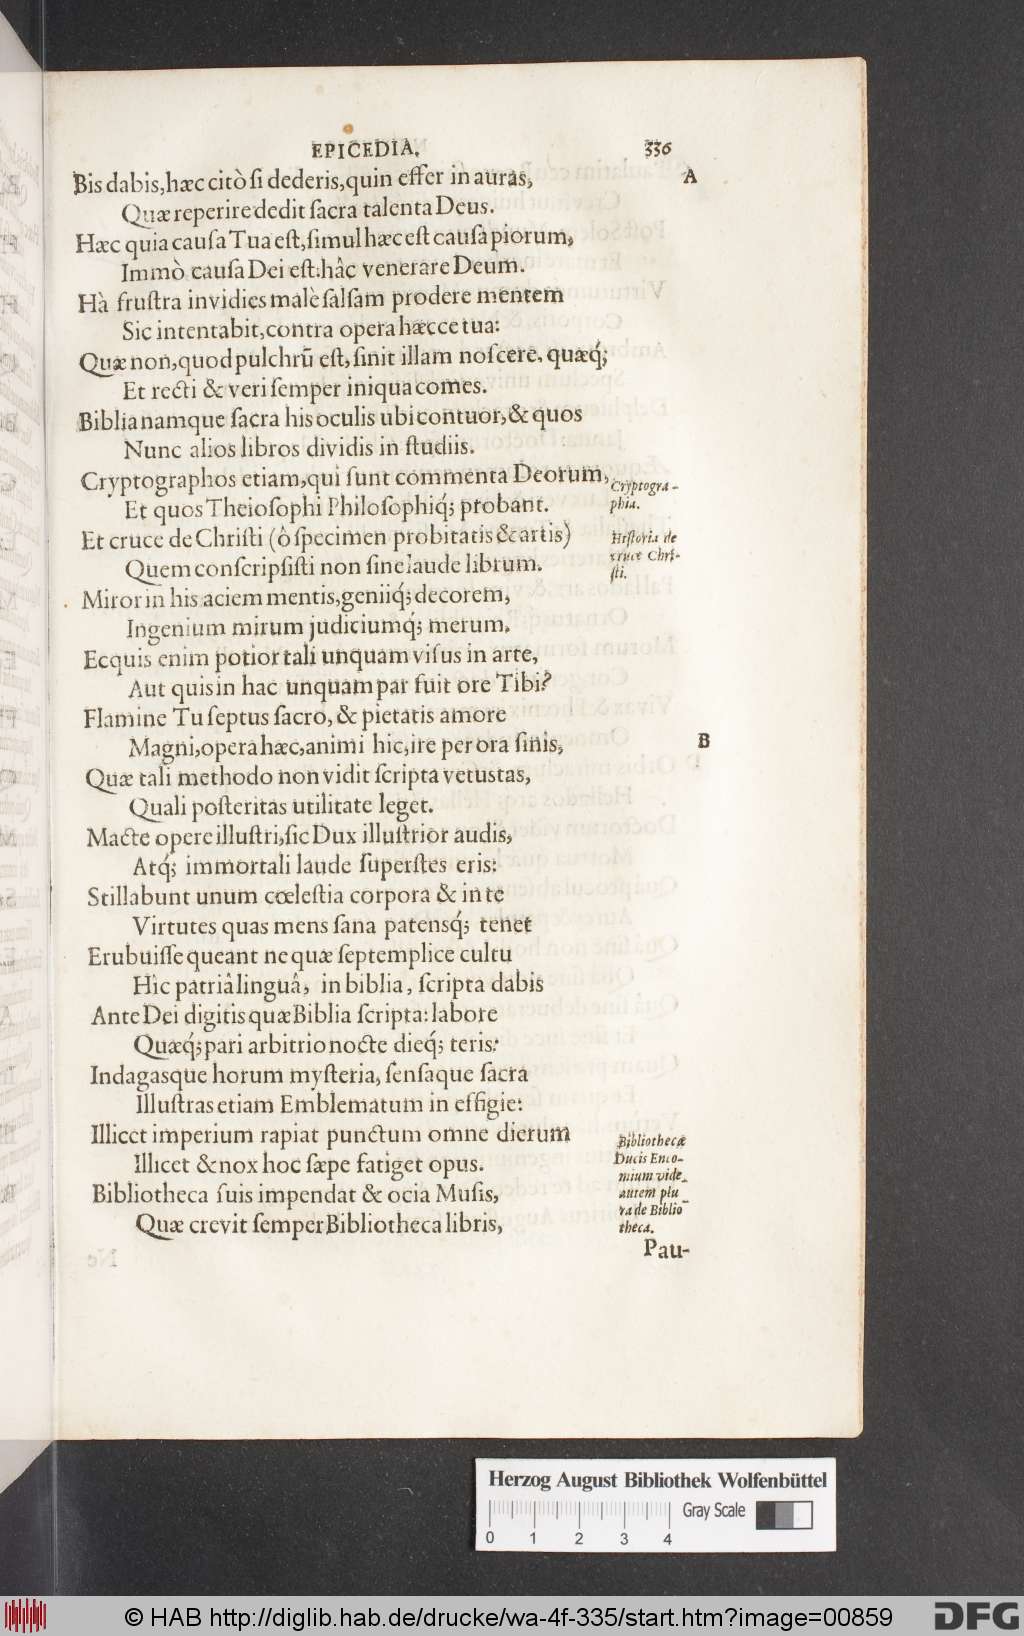 EPICEDIA. 336
Bis dabis, hæc citò si dederis, quin effer in auras, A
Quæ reperire dedit sacra talenta Deus.
Hæc quia causa Tua est, simul hæc est causa piorum,
Immò causa Dei est: hâc venerare Deum.
Hà frustra invidies malè salsam prodere mentem
Sic intentabit, contra opera hæcce tua:
Quæ non, quod pulchrū est, sinit illam noscere, quæq́;
Et recti & veri semper iniqua comes.
Biblia namque sacra his oculis ubi contuor, & quos
Nunc alios libros dividis in studiis.
Cryptographos etiam, qui sunt commenta Deorum,
Cryptogra-
phia.
Et quos Theiosophi Philosophiq́; probant.
Et cruce de Christi (ô specimen probitatis & artis)
Historia de
cruce Chri-
sti.
Quem conscripsisti non sine laude librum.
Miror in his aciem mentis, geniiq́; decorem,
Ingenium mirum judiciumq́; merum.
Ecquis enim potior tali unquam visus in arte,
Aut quis in hac unquam par fuit ore Tibi?
Flamine Tu septus sacro, & pietatis amore
Magni, opera hæc, animi hic, ire per ora sinis, B
Quæ tali methodo non vidit scripta vetustas,
Quali posteritas utilitate leget.
Macte opere illustri, sic Dux illustrior audis,
Atq́; immortali laude superstes eris:
Stillabunt unum cœlestia corpora & in te
Virtutes quas mens sana patensq́; tenet
Erubuisse queant ne quæ septemplice cultu
Hîc patriâ linguâ, in biblia, scripta dabis
Ante Dei digitis quæ Biblia scripta: labore
Quæq́; pari arbitrio nocte dieq́; teris:
Indagasque horum mysteria, sensaque sacra
Illustras etiam Emblematum in effigie:
Illicet imperium rapiat punctum omne dierum
Illicet & nox hoc sæpe fatiget opus.
Bibliotheca suis impendat & ocia Musis,
Quæ crevit semper Bibliotheca libris,
Bibliothecæ
Ducis Enco-
mium vide
autem plu
ra de Biblio
theca.
Pau-
Herzog August Bibliothek Wolfenbüttel
Gray Scale
0 1 2 3 4
© HAB http://diglib.hab.de/drucke/wa-4f-335/start.htm?image=00859
DFG